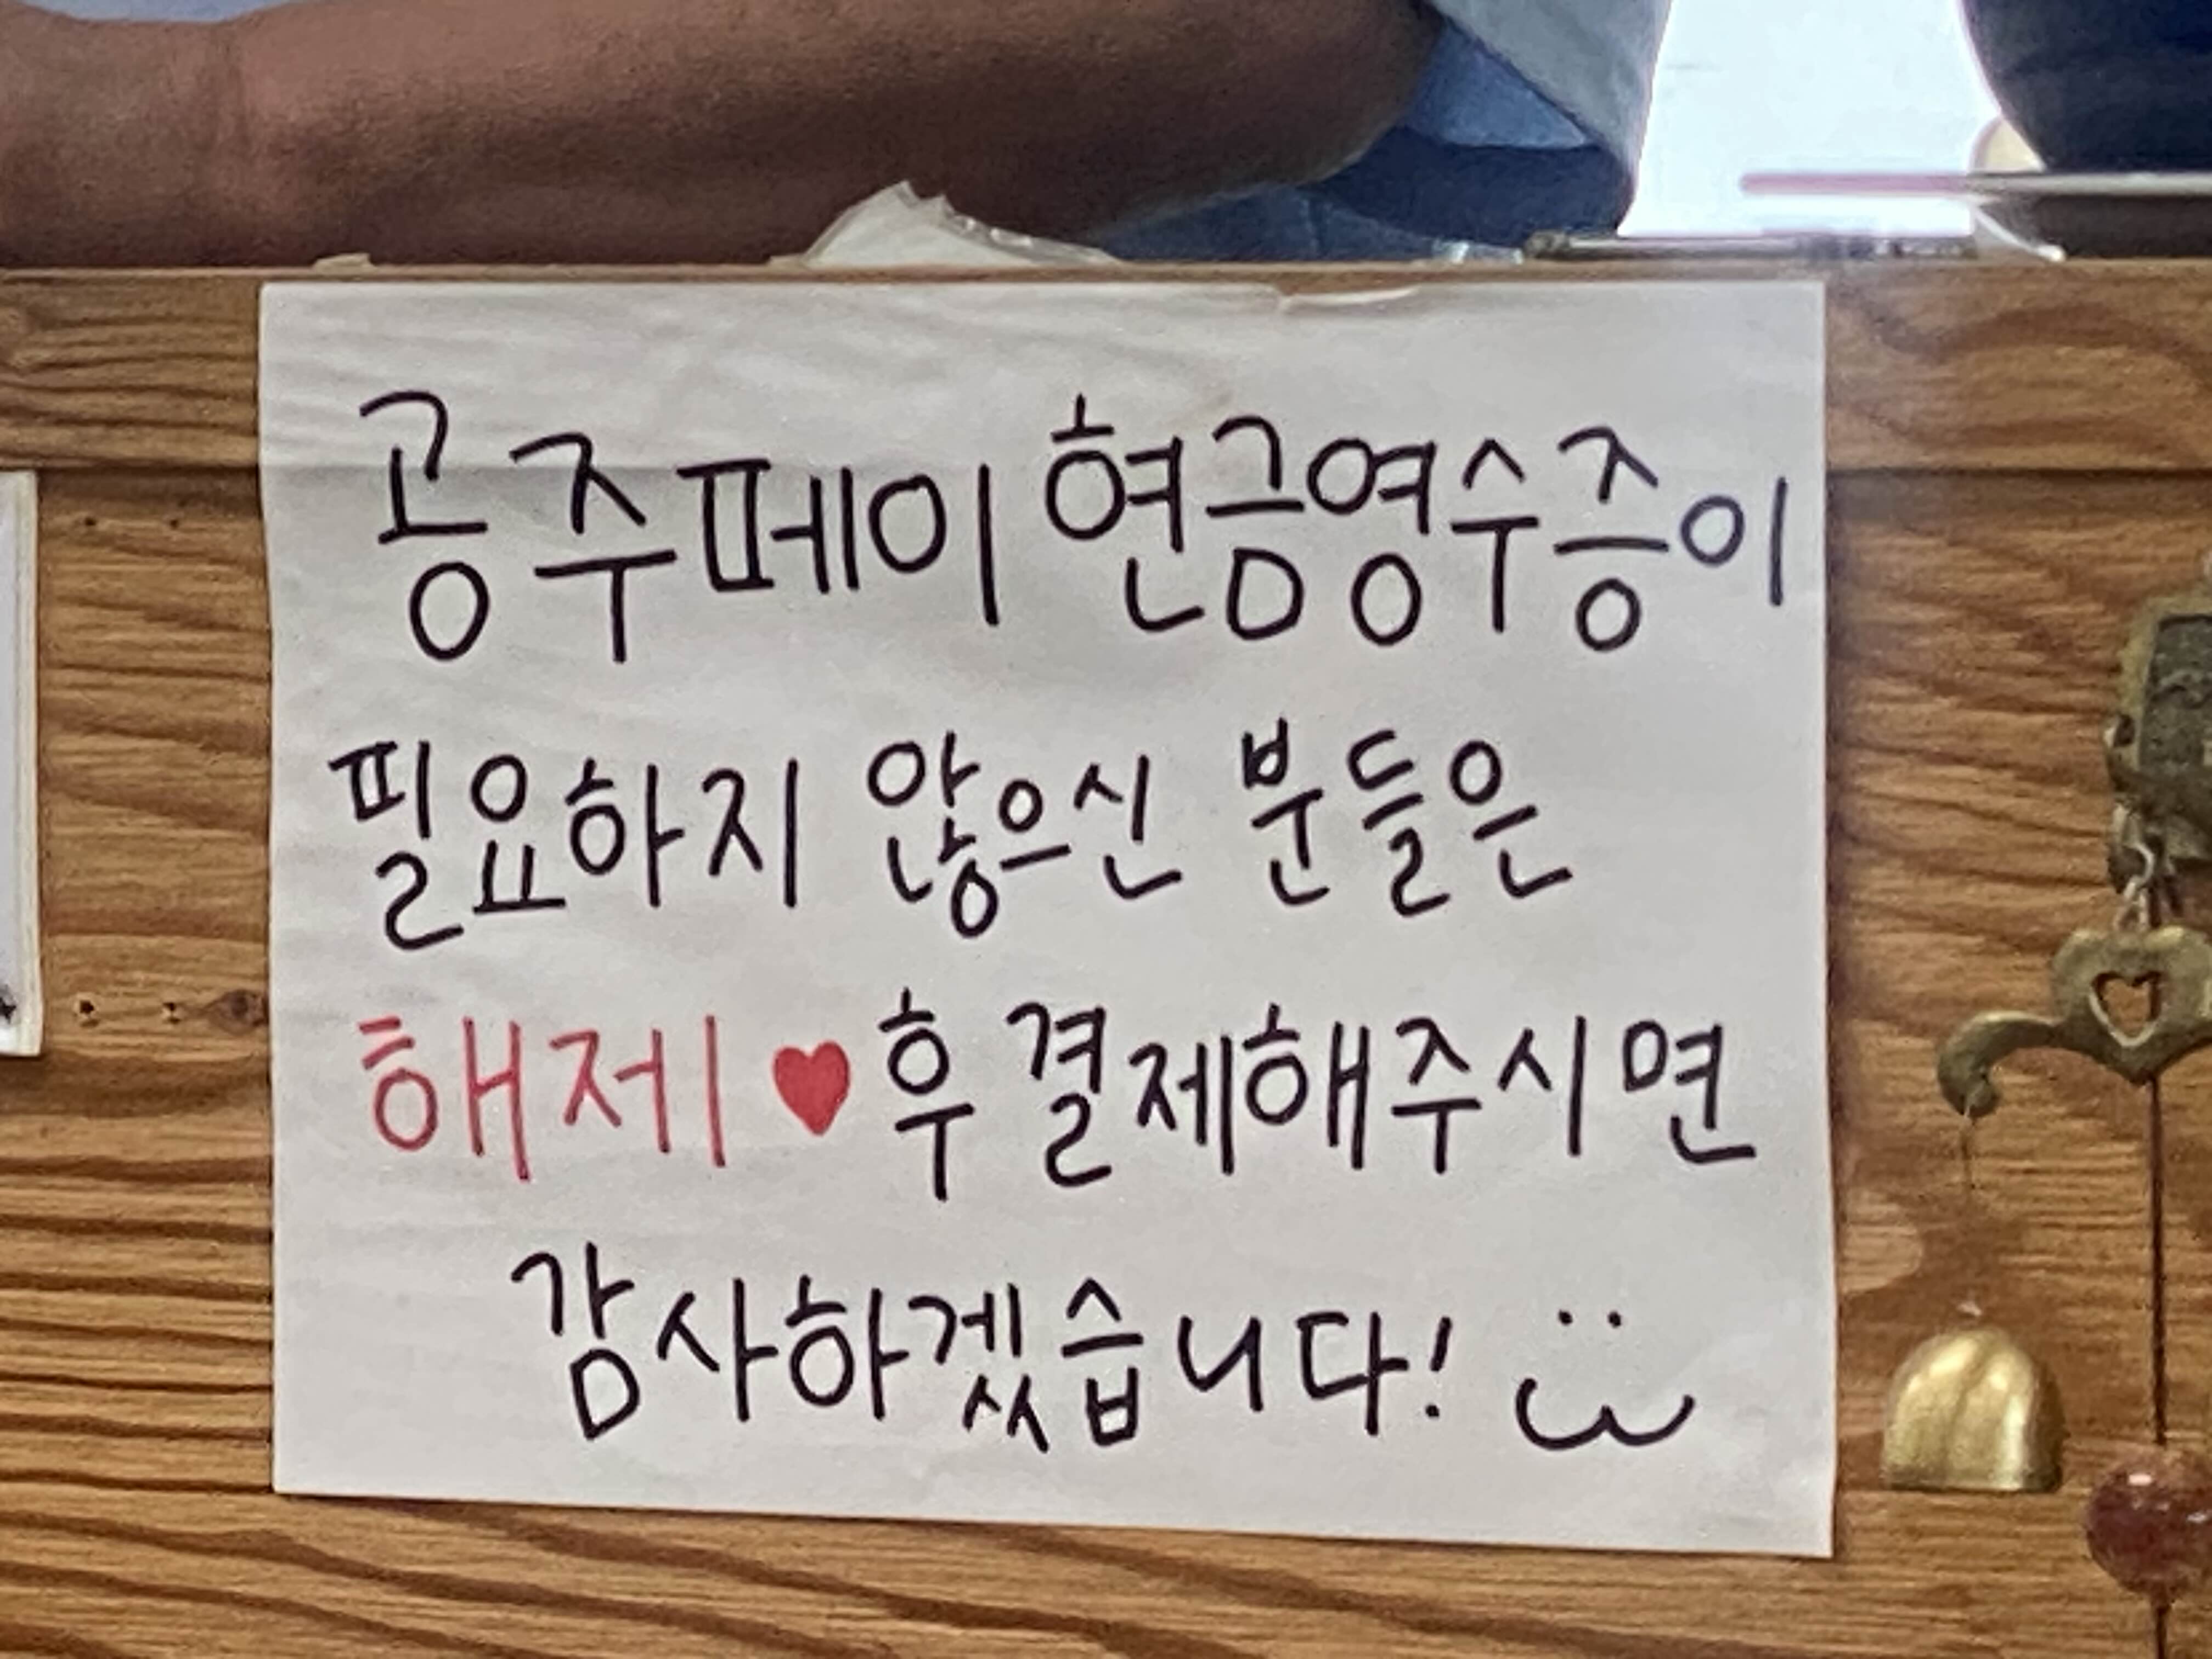 공주페이 현금영수증이
필요하지 않으신 분들은
해제♥후 결제해주시면
감사하겠습니다!